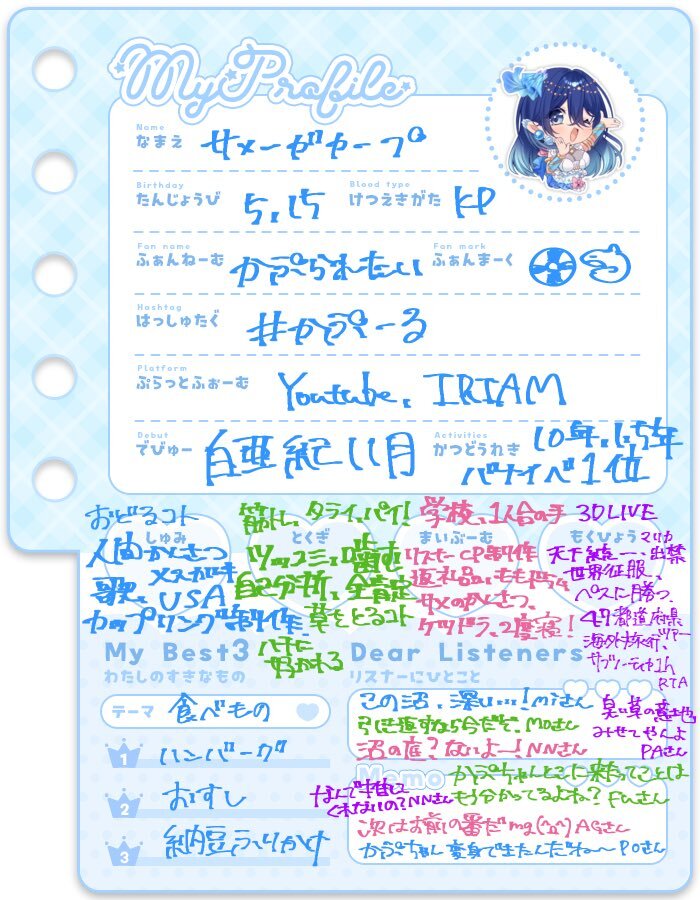 My Profile
Name
なまえ サメーガカープ
Birthday
たんじょうび 5.15
Blood type
けつえきがた KP
Fan name
ふぁんねーむ かぷられたい
Fan mark
ふぁんまーく
Hashtag
はっしゅたぐ #かぷーる
Platform
ぷらっとふぉーむ Youtube、IRIAM
Debut
でびゅー 白亜紀11月
Activities
かつどうれき 10年、1.5年
バナイベ1位
しゅみ
おどるコト
人間かんさつ
歌、メスガキ
USA
カップリング制作
とくぎ
筋トレ、タライ、パイ!
ツッコミ、噛む
自己分析、全肯定
草をとるコト
ハチに
好かれる
まいぶーむ
学校、1人合の手
リスナーCP制作
返礼品、ももドラム
サメのかんさつ、
ケツドラ、2度寝!
もくひょう
3D LIVE
天下統一、マリカ出禁
世界征服、
ペスに勝つ、
47都道府県
海外旅行、ツアー
RTA
My Best3
わたしのすきなもの
テーマ 食べもの
1 ハンバーグ
2 おすし
3 納豆ふりかけ
Dear Listeners
リスナーにひとこと
この沼、深い…!miさん
引き返すなら今だぞ、MOさん
沼の底?ないよー!NNさん
臭い草の意地
みせてやんよ
PAさん
Memo
かぷちゃんとこに来たってことは
もう分かってるよね?Fuさん
なんで推して
くれないの?NNさん
次はお前の番だm9(^Д^)AGさん
かぷちゃん変身できたんだね〜POさん